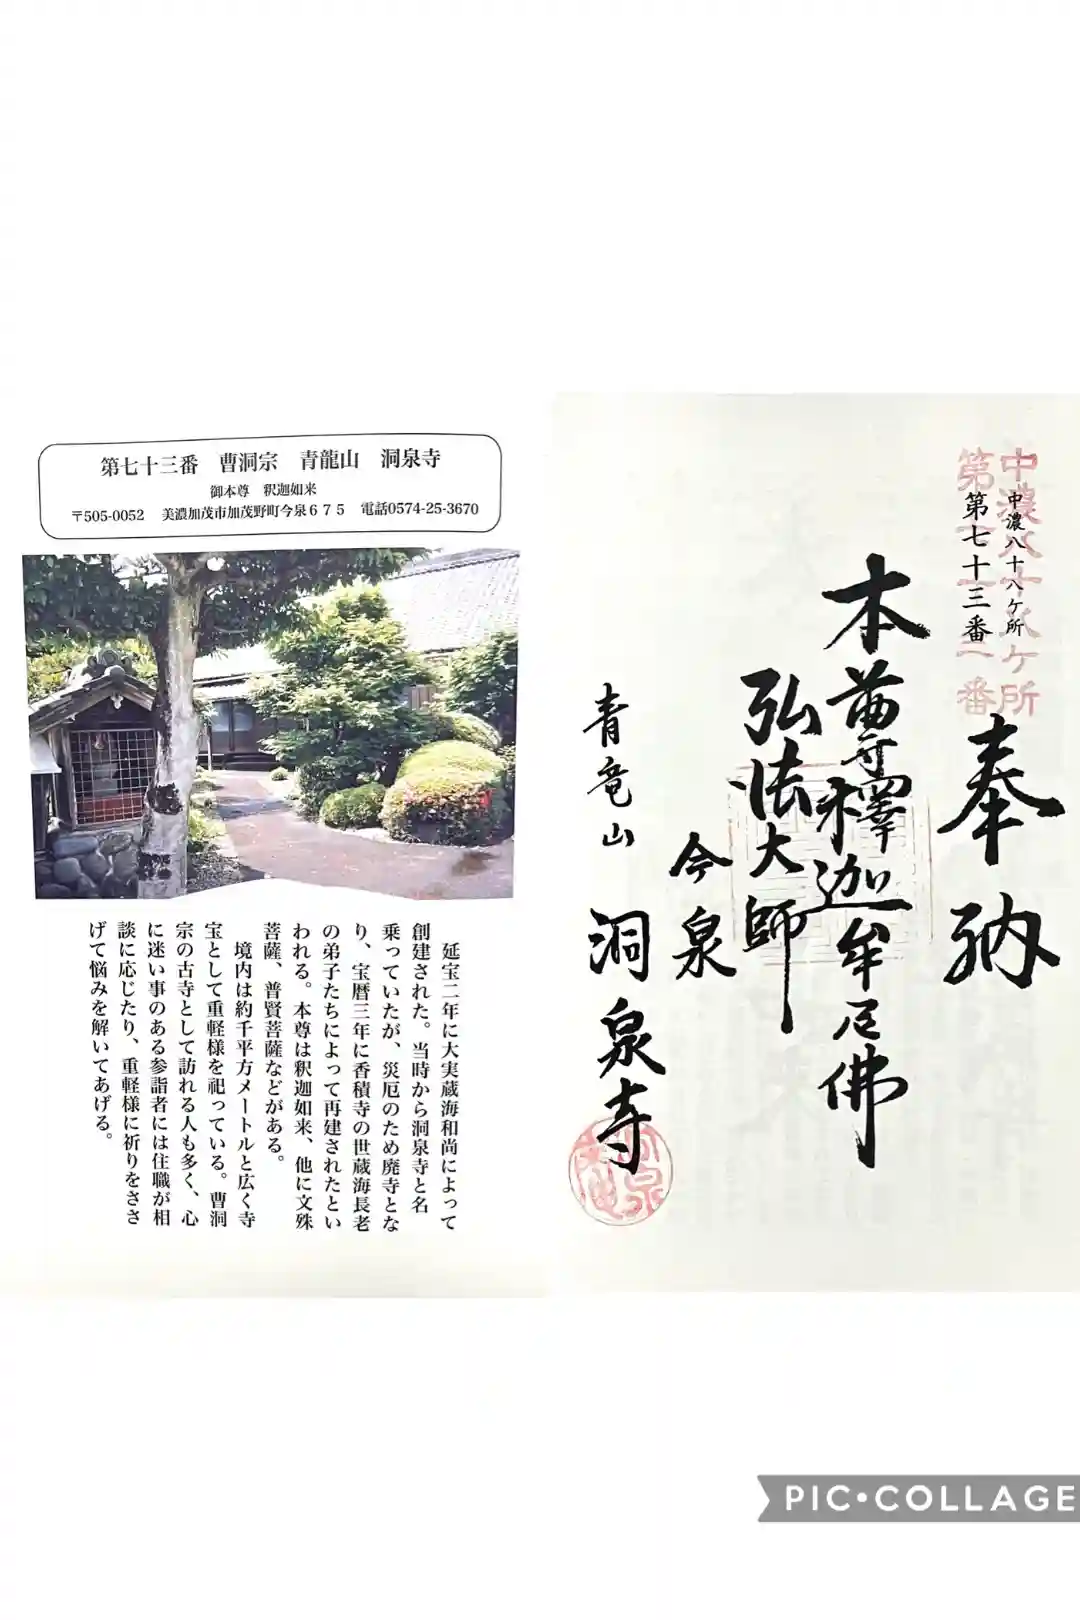 第七十三番 曹洞宗 青龍山 洞泉寺
御本尊 釈迦如来
〒505-0052 美濃加茂市加茂野町今泉675 電話0574-25-3670
延宝二年に大実蔵海和尚によって
創建された。当時から洞泉寺と名
乗っていたが、災厄のため廃寺とな
り、宝暦三年に香積寺の世蔵海長老
の弟子たちによって再建されたとい
われる。本尊は釈迦如来、他に文殊
菩薩、普賢菩薩などがある。
境内は約千平方メートルと広く寺
宝として重軽様を祀っている。曹洞
宗の古寺として訪れる人も多く、心
に迷い事のある参詣者には住職が相
談に応じたり、重軽様に祈りをささ
げて悩みを解いてあげる。
中濃八十八ヶ所
第七十三番
中濃八十八ヶ所
第七十三番
奉納
本尊釋迦牟尼佛
弘法大師
今泉
青竜山 洞泉寺
PIC•COLLAGE